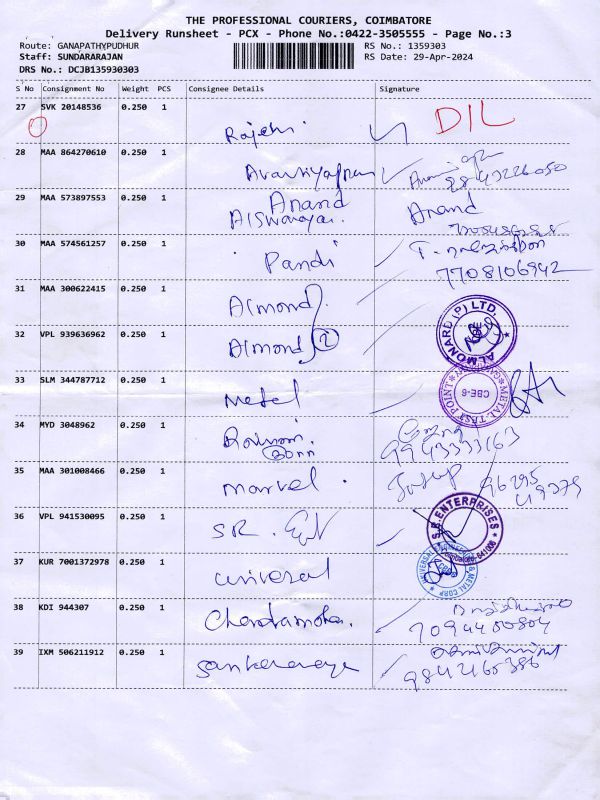 THE PROFESSIONAL COURIERS, COIMBATORE
Delivery Runsheet - PCX - Phone No.:0422-3505555 - Page No.:3
Route: GANAPATHYPUDHUR RS No.: 1359303
Staff: SUNDARARAJAN RS Date: 29-Apr-2024
DRS No.: DCJB135930303
S No Consignment No Weight PCS Consignee Details Signature
27 SVK 20148536 0.250 1 DIL
28 MAA 864270610 0.250 1
29 MAA 573897553 0.250 1 Anand Anand
Aiswarya.
30 MAA 574561257 0.250 1 Pandi
7708106942
31 MAA 300622415 0.250 1 Almond
ALMONARD (P) LTD.
32 VPL 939636962 0.250 1 Almond 2
33 SLM 344787712 0.250 1 Metel
METAL TAST POINT CBE-6
34 MYD 3048962 0.250 1
9943333163
35 MAA 301008466 0.250 1 Marvel.
36 VPL 941530095 0.250 1 SR.
S.R. ENTERPRISES
37 KUR 7001372978 0.250 1 Universal
38 KDI 944307 0.250 1 Chandramohan.
39 IXM 506211912 0.250 1
9842165386